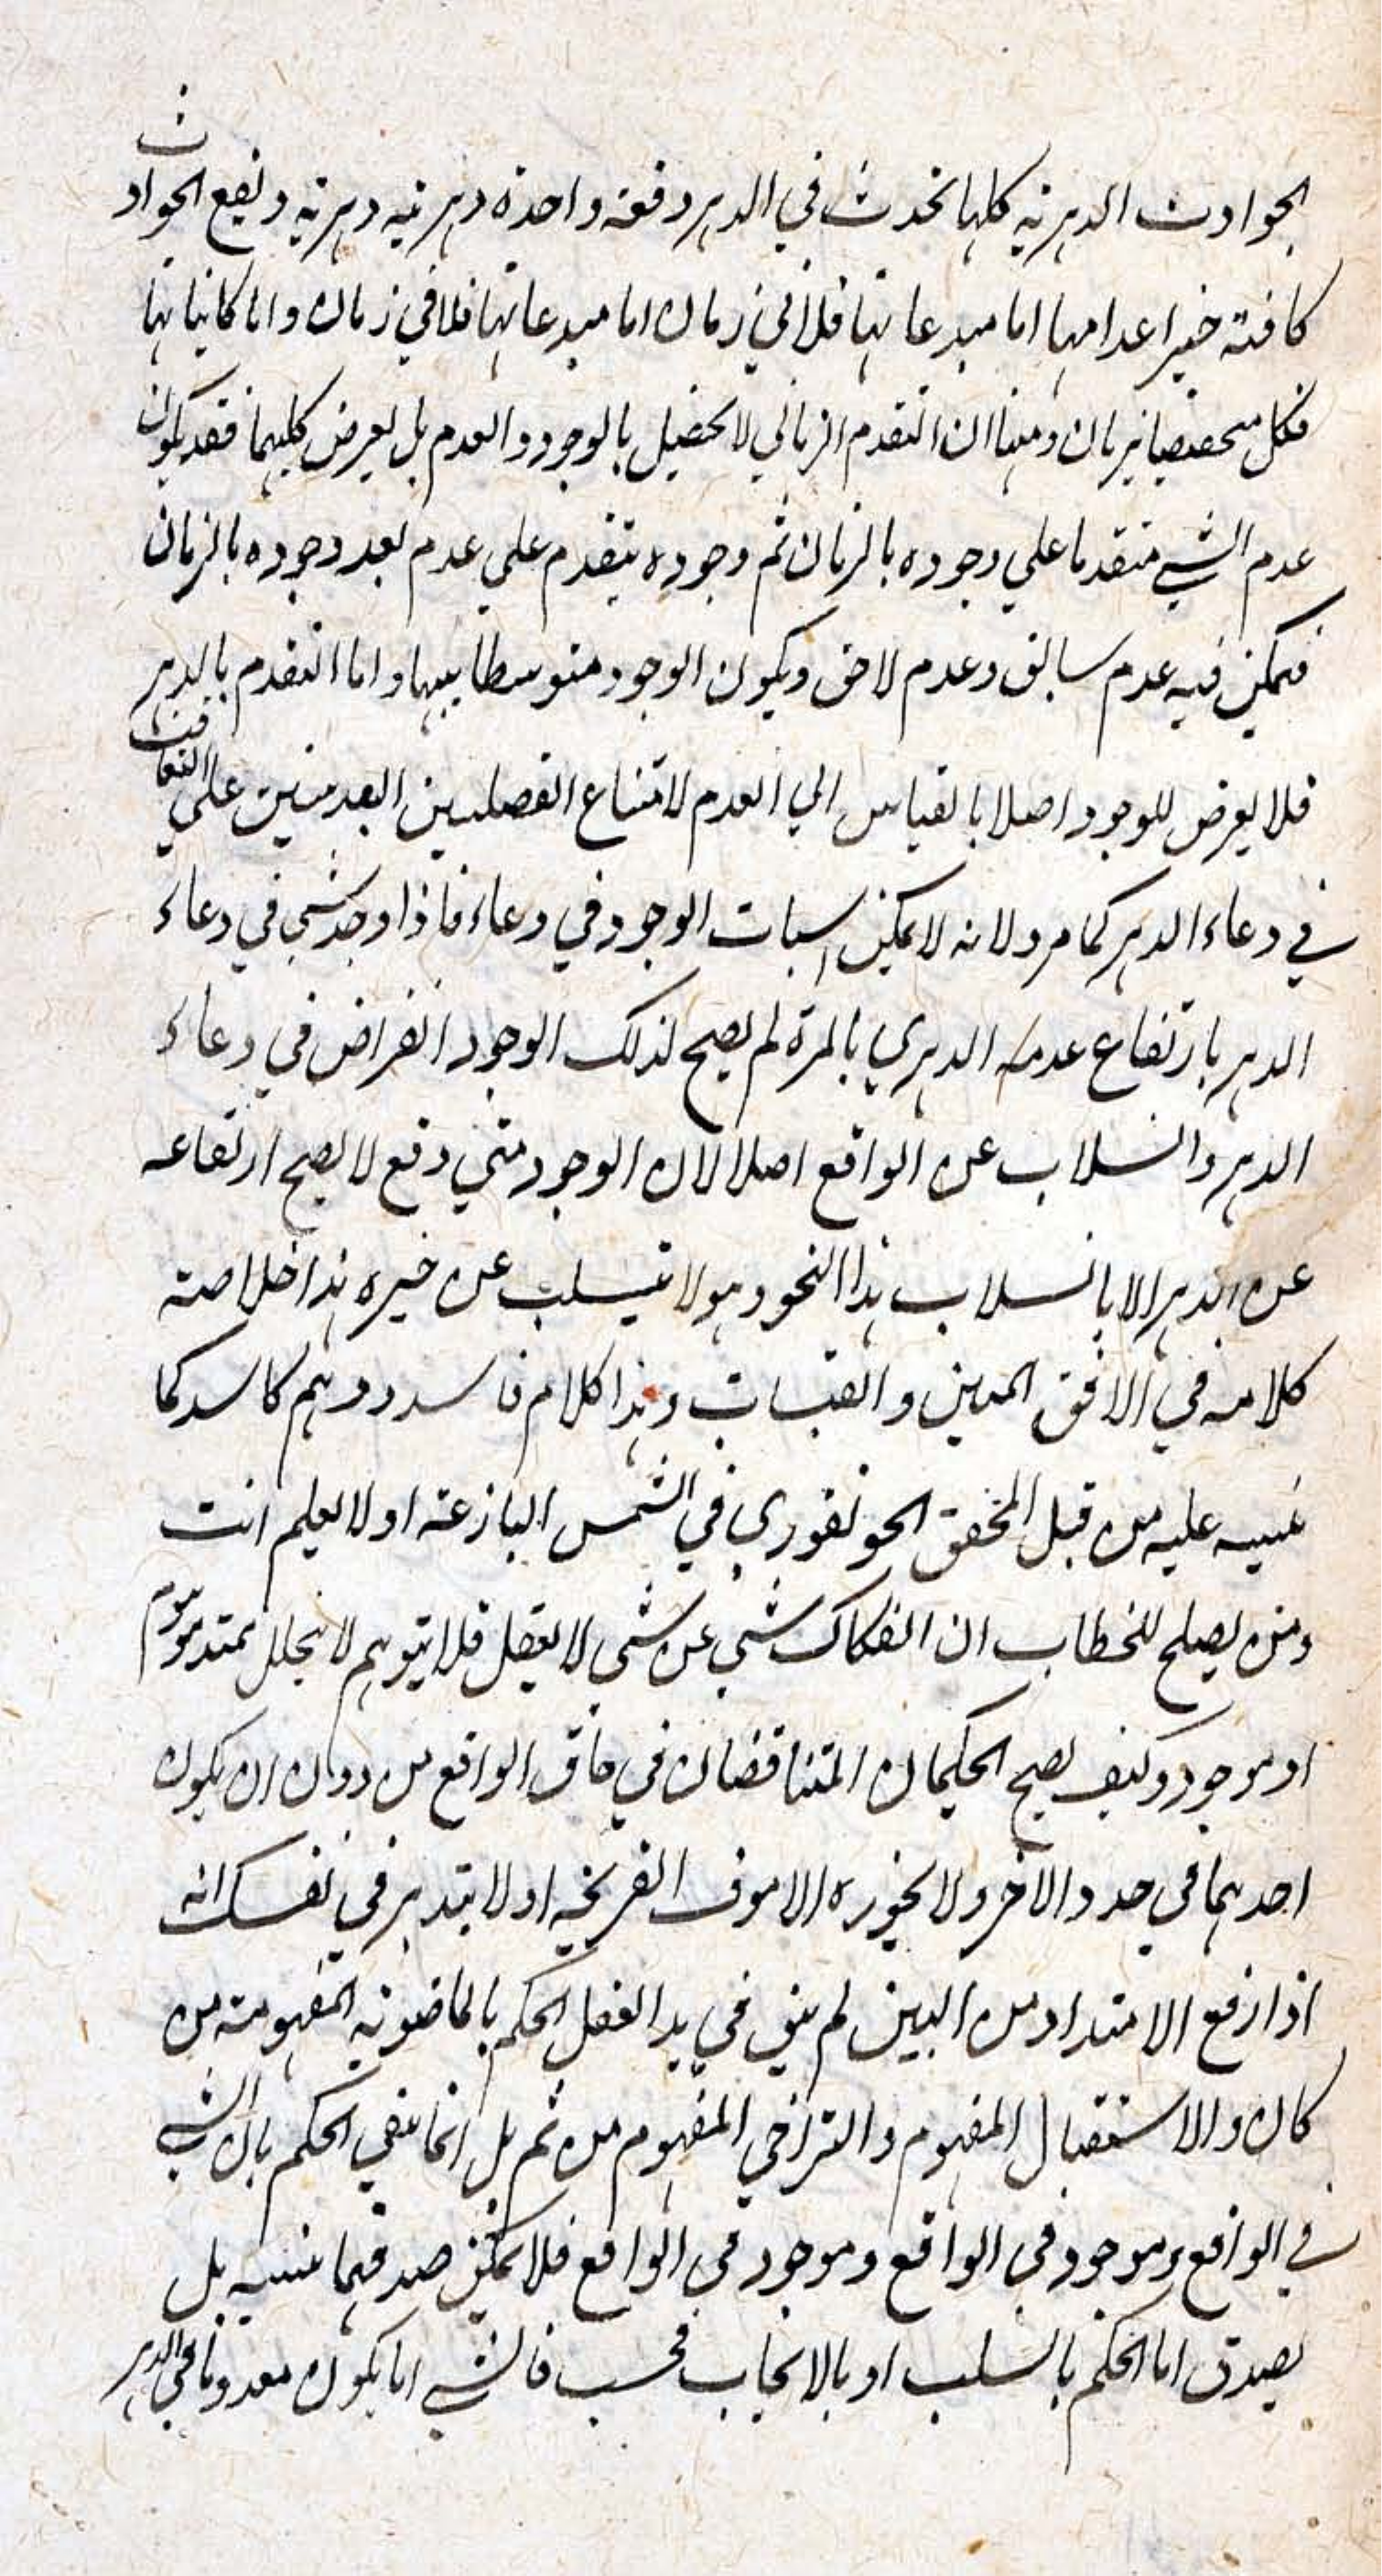 الحوادث الدهرية كلها تحدث في الدهر دفعة واحدة دهرية دهرية ويقع الحوادث
كافة خير اعدامها اما مبدعاتها فلا في زمان اما مبدعاتها فلا في زمان واما كايناتها
فكل متخصصا بزمان ومنها ان التقدم الزماني لا يختص بالوجود والعدم بل يعرض كليهما فقد يكون
عدم الشي متقدما علي وجوده بالزمان ثم وجوده يتقدم علي عدم بعد وجوده بالزمان
فيمكن فيه عدم سابق وعدم لاحق ويكون الوجود متوسطا بينهما واما التقدم بالدهر
فلا يعرض للوجود اصلا بالقياس الي العدم لامتناع الفصليين العدميين علي التعاقب
في وعاء الدهر كما مر ولانه لا يمكن اسبات الوجود في وعاء فاذا وجد شي في وعاء
الدهر بارتفاع عدمه الدهري بالمرة لم يصح لذلك الوجود انقراض في وعاء
الدهر وانسلاب عن الواقع اصلا لان الوجود متي وقع لا يصح ارتفاعه
عن الدهر الا بانسلاب هذا النحو وهو لا ينسلب عن خيره هذا خلاصة
كلامه في الافق المبين والقبسات وهذا كلام فاسد ووهم كاسد كما
نبه عليه من قبل المحقق الجونفوري في الشمس البازغة اولا يعلم انت
ومن يصلح للخطاب ان انفكاك شي عن شي لا يعقل فلا يتوهم لا بخلل ممتد موهوم
او موجود وكيف يصح الحكمان المتناقضان في حاق الواقع من دون ان يكون
احدهما في حد والاخر ولا يجوزه الا موف القريحة اولا يتدبر في نفسك انه
اذا رفع الامتداد من البين لم يبق في يد العقل الحكم بالماضوية المفهومة من
كان والاستقبال المفهوم والتراخي المفهوم من ثم بل انما يبقي الحكم بان الشي
في الواقع وموجود في الواقع وموجود في الواقع فلا يمكن صدقهما بل
يصدق اما الحكم بالسلب او بالايجاب فحسب فالشي اما يكون معدوما في الدهر